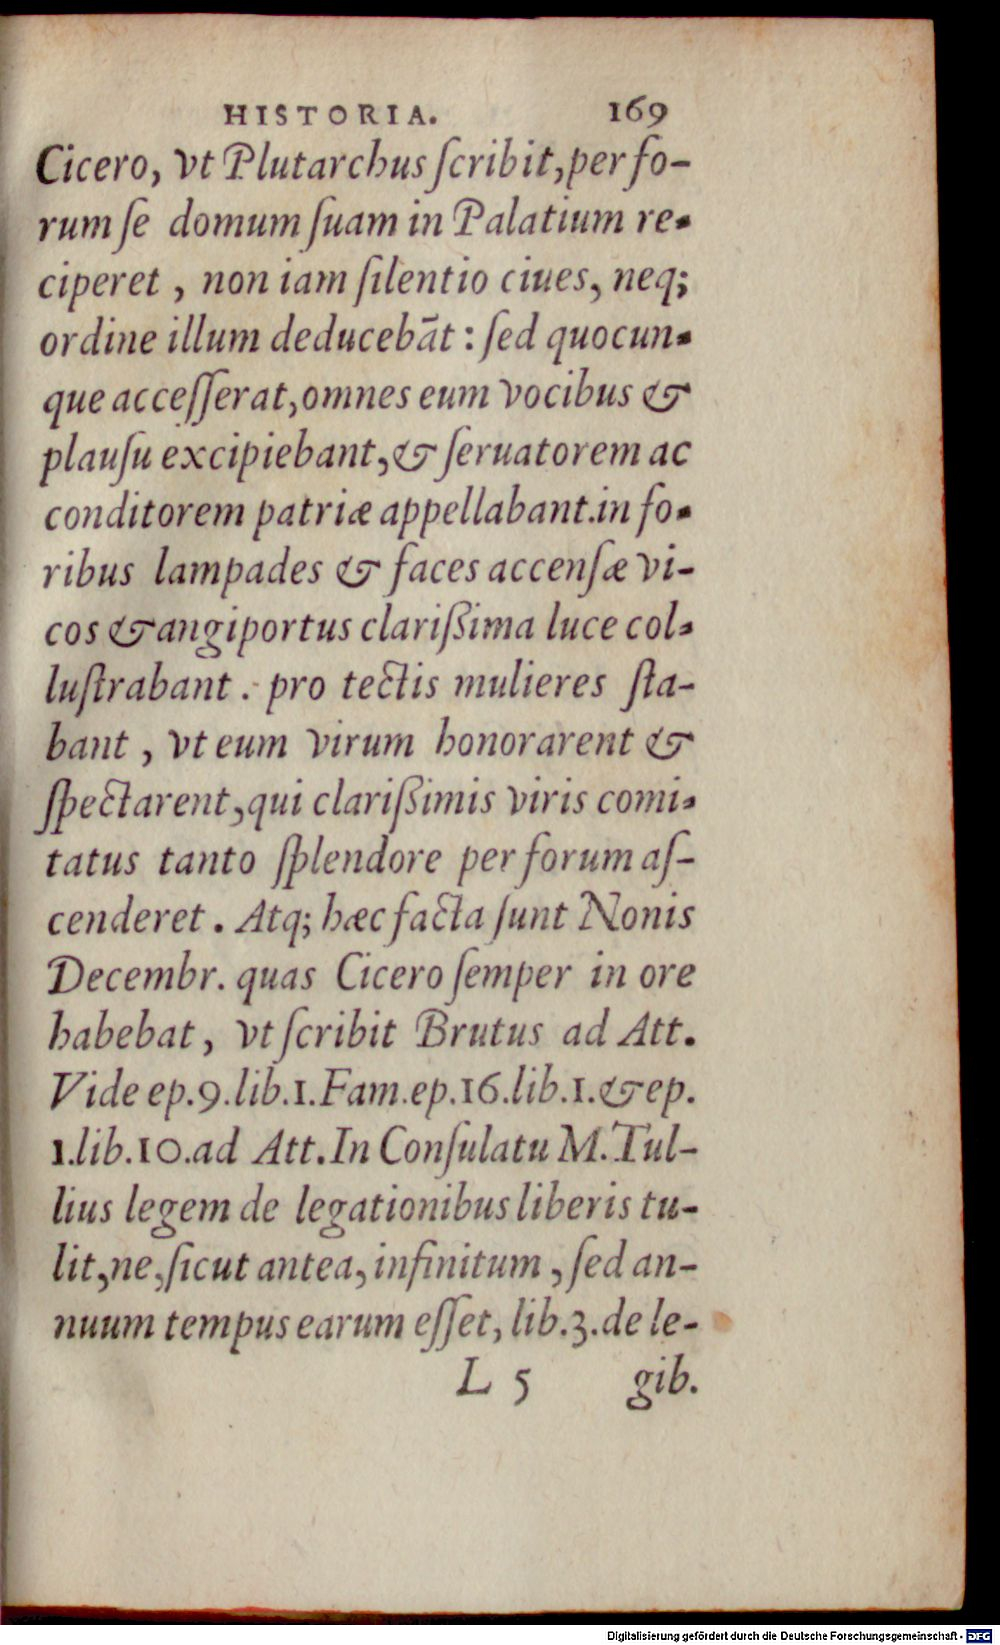 HISTORIA. 169
Cicero, vt Plutarchus ſcribit, per fo-
rum ſe domum ſuam in Palatium re-
ciperet, non iam ſilentio ciues, neq;
ordine illum deducebāt: ſed quocun-
que acceſſerat, omnes eum vocibus &
plauſu excipiebant, & ſeruatorem ac
conditorem patriæ appellabant. in fo-
ribus lampades & faces accenſæ vi-
cos & angiportus clarißima luce col-
luſtrabant. pro tectis mulieres ſta-
bant, vt eum virum honorarent &
ſpectarent, qui clarißimis viris comi-
tatus tanto ſplendore per forum aſ-
cenderet. Atq; hæc facta ſunt Nonis
Decembr. quas Cicero ſemper in ore
habebat, vt ſcribit Brutus ad Att.
Vide ep. 9. lib. 1. Fam. ep. 16. lib. 1. & ep.
1. lib. 10. ad Att. In Conſulatu M. Tul-
lius legem de legationibus liberis tu-
lit, ne, ſicut antea, infinitum, ſed an-
nuum tempus earum eſſet, lib. 3. de le-
L 5 gib.
Digitalisierung gefördert durch die Deutsche Forschungsgemeinschaft - DFG